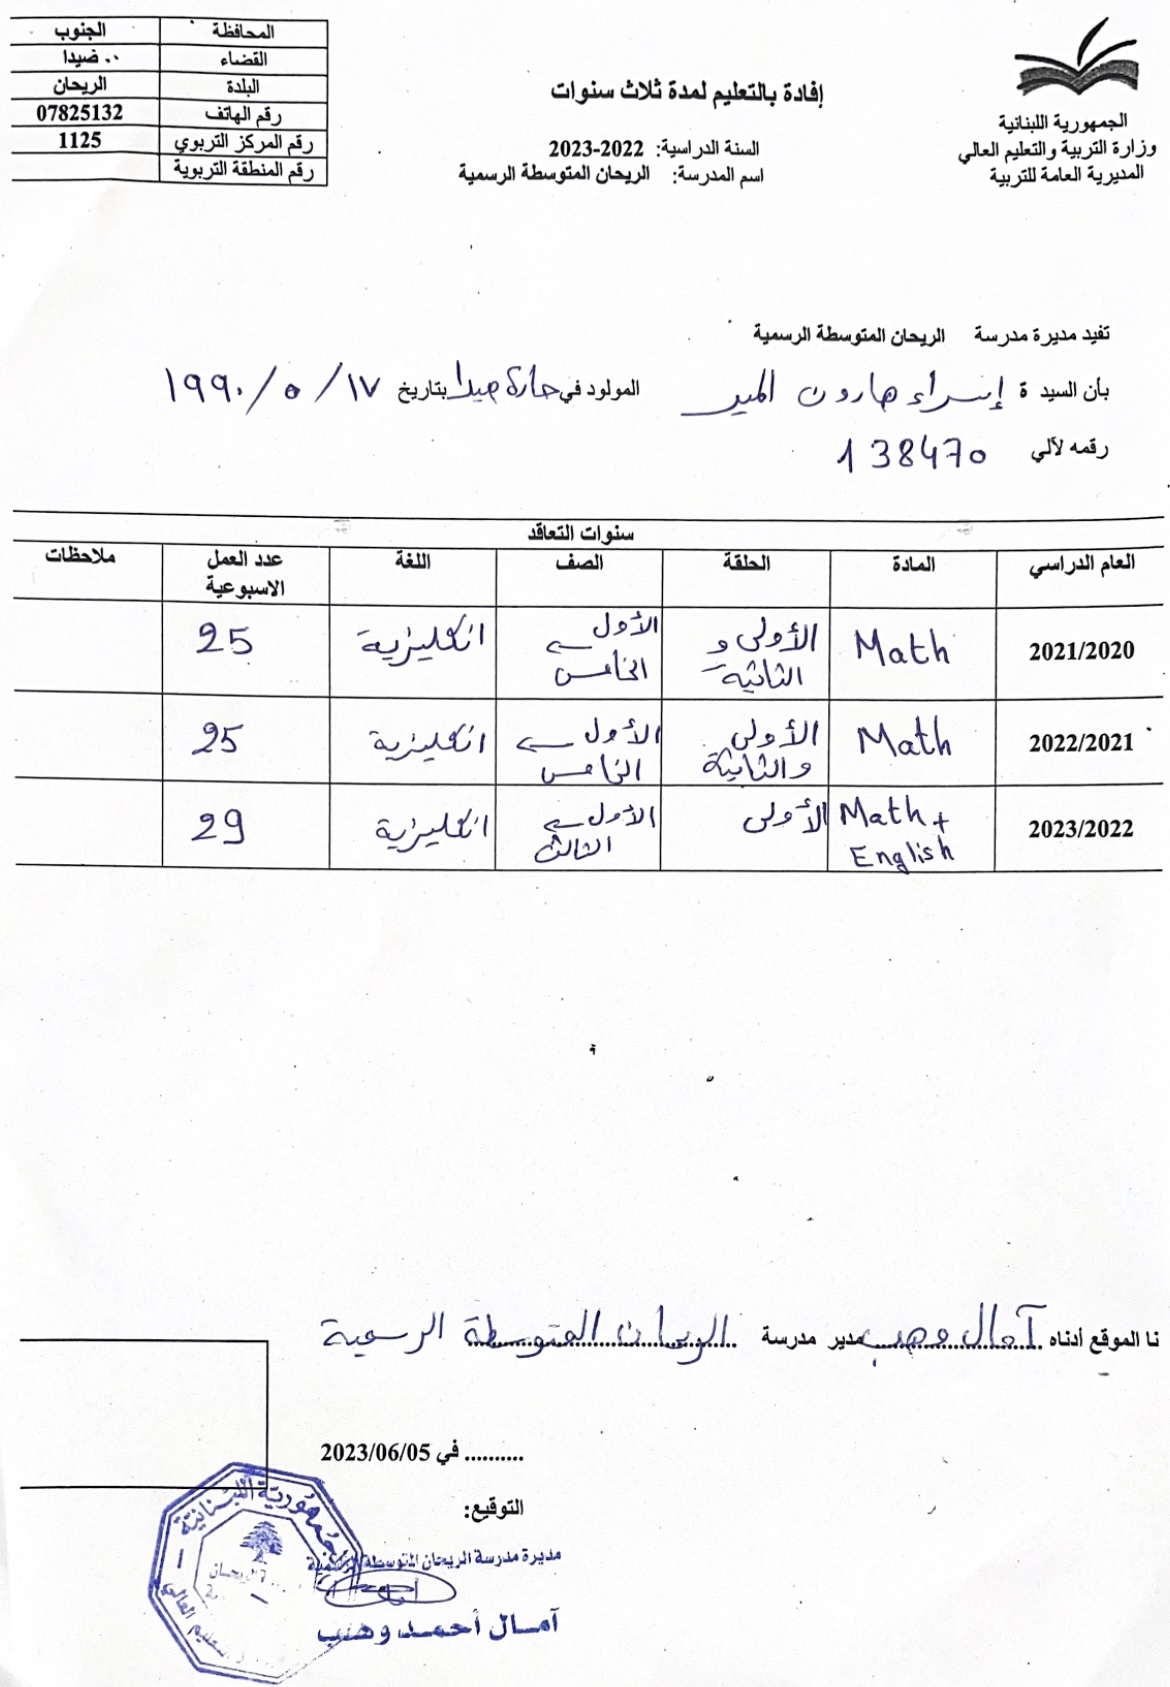 الجمهورية اللبنانية
وزارة التربية والتعليم العالي
المديرية العامة للتربية
إفادة بالتعليم لمدة ثلاث سنوات
السنة الدراسية: 2022-2023
اسم المدرسة: الريحان المتوسطة الرسمية
المحافظة الجنوب
القضاء صيدا
البلدة الريحان
رقم الهاتف 07825132
رقم المركز التربوي 1125
رقم المنطقة التربوية
تفيد مديرة مدرسة الريحان المتوسطة الرسمية
بأن السيد ة إسراء هارون المير المولود في حارة صيدا بتاريخ ١٧ / ٥ / ١٩٩٠
رقمه لآلي 138470
سنوات التعاقد
العام الدراسي المادة الحلقة الصف اللغة عدد العمل الاسبوعية ملاحظات
2021/2020 Math الأولى و الثانية الأول ← الخامس انكليزية 25
2022/2021 Math الأولى والثانية الأول ← الخامس انكليزية 25
2023/2022 Math + English الأولى الأول ← الثالث انكليزية 29
نا الموقع أدناه آمال وهب مدير مدرسة الريحان المتوسطة الرسمية
.......... في 2023/06/05
التوقيع:
مديرة مدرسة الريحان المتوسطة الرسمية
آمال أحمد وهب
الجمهورية اللبنانية
الريحان
التعليم العالي